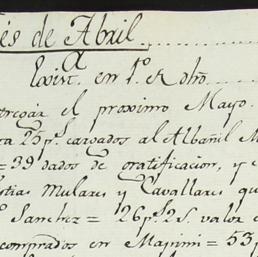 és de Abril
Exist.a en 1.o de dho
tregàr el proximo Mayo
ta 25 p.s cargados al Albañil M
= 39 dados de gratificacion, y e
stias Mulares y Cavallares qu
o Sanchez = 26 p.s 2 s. valor
comprados en Mapimi = 53 p